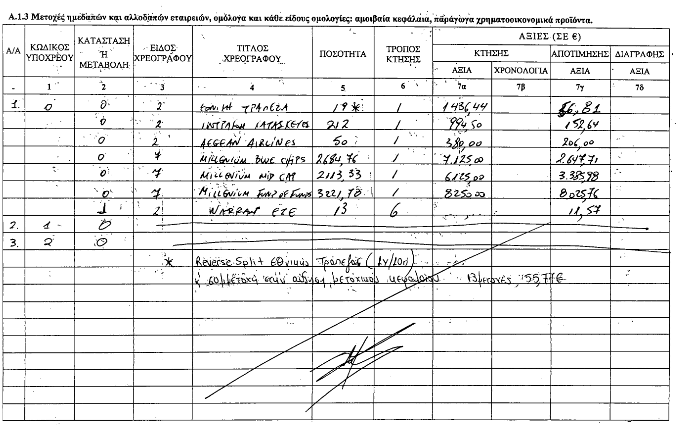 Α.1.3 Μετοχές ημεδαπών και αλλοδαπών εταιρειών, ομόλογα και κάθε είδους ομολογίες: αμοιβαία κεφάλαια, παράγωγα χρηματοοικονομικά προϊόντα.
Α/Α ΚΩΔΙΚΟΣ ΥΠΟΧΡΕΟΥ ΚΑΤΑΣΤΑΣΗ Ή ΜΕΤΑΒΟΛΗ ΕΙΔΟΣ ΧΡΕΟΓΡΑΦΟΥ ΤΙΤΛΟΣ ΧΡΕΟΓΡΑΦΟΥ ΠΟΣΟΤΗΤΑ ΤΡΟΠΟΣ ΚΤΗΣΗΣ ΑΞΙΕΣ (ΣΕ €)
ΚΤΗΣΗΣ ΑΠΟΤΙΜΗΣΗΣ ΔΙΑΓΡΑΦΗΣ
ΑΞΙΑ ΧΡΟΝΟΛΟΓΙΑ ΑΞΙΑ ΑΞΙΑ
- 1 2 3 4 5 6 7α 7β 7γ 7δ
1. 0 0 2 ΕΘΝΙΚΗ ΤΡΑΠΕΖΑ 19* 1 1436,44 56,81
0 2 212 1 994,50 152,64
0 2 AEGEAN AIRLINES 50 1 380,00 206,00
0 7 MILLENIUM BLUE CHIPS 2684,76 1 7.125,00 2.647,71
0 7 MILLENIUM MID CAP 2113,53 1 6125,00 3.385,98
0 7 MILLENIUM FUND OF FUNDS 3221,78 1 8250,00 8025,76
1 2 WARRAN ΕΤΕ 13 6 11,57
2. 1 0
3. 2 0
* Reverse Split Εθνικής Τραπεζας (1ν/10π)
κ συμμετοχή στην αύξηση μετοχικού κεφαλαίου 13 μετοχές, 55,77€